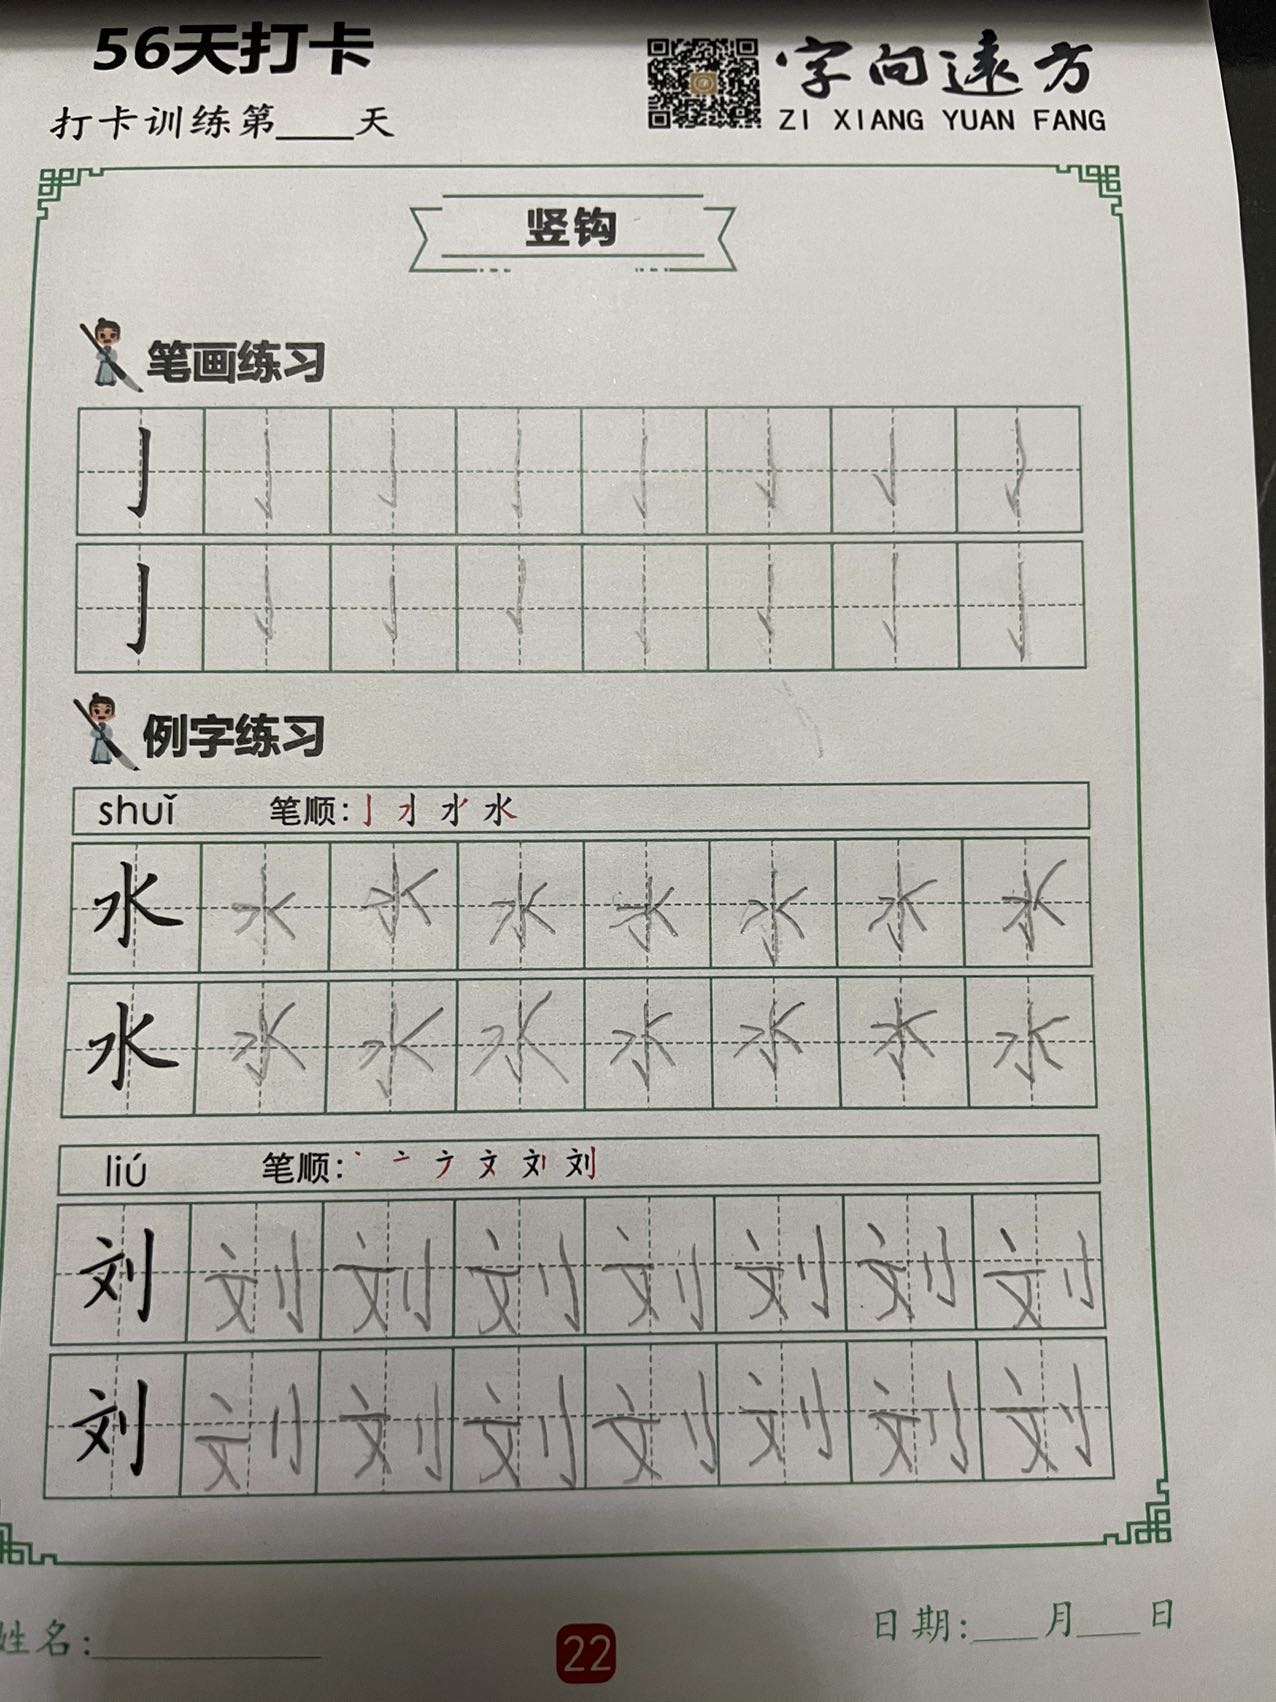 56天打卡
打卡训练第____天
字向遠方
ZI XIANG YUAN FANG
竖钩
笔画练习
亅 亅 亅 亅 亅 亅 亅 亅
亅 亅 亅 亅 亅 亅 亅 亅
例字练习
shuǐ 笔顺: 水
水 水 水 水 水 水 水 水
水 水 水 水 水 水 水 水
liú 笔顺: 丶 亠 文 刘
刘 刘 刘 刘 刘 刘 刘 刘
刘 刘 刘 刘 刘 刘 刘 刘
姓名:____
22
日期:___月___日